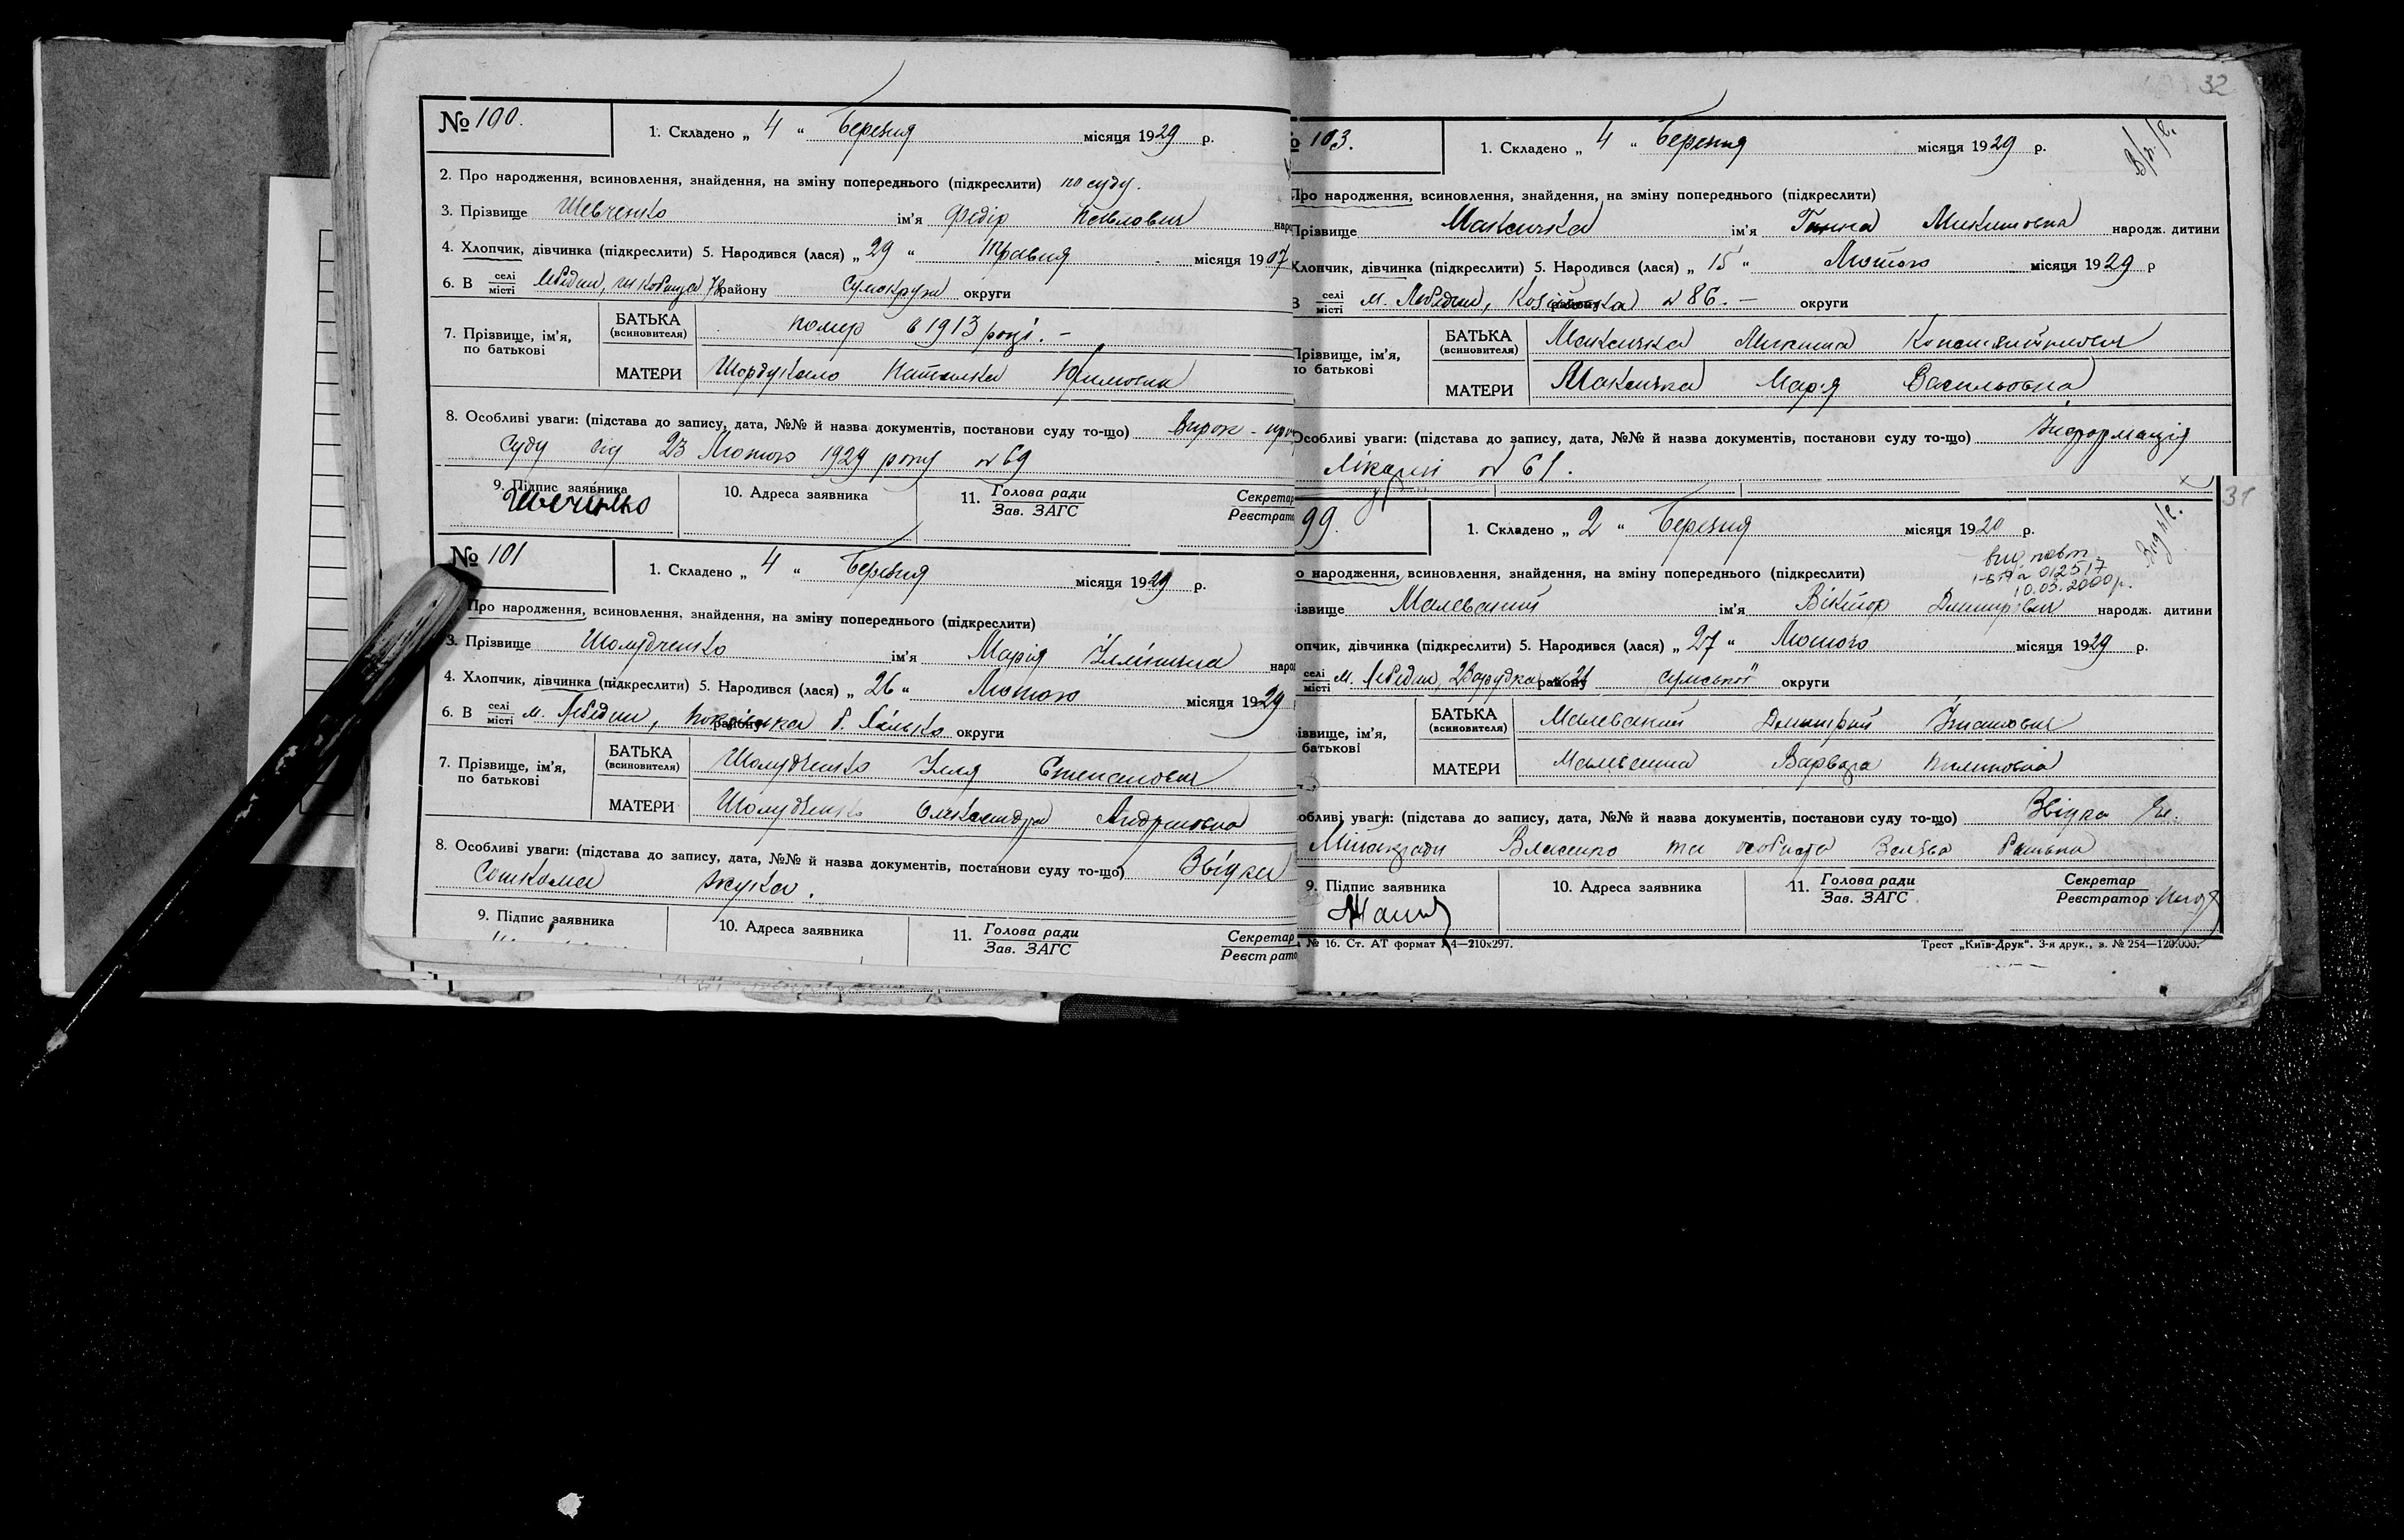 № 100.
1. Складено „ 4 “ Березня місяця 1929 р.
2. Про народження, всиновлення, знайдення, на зміну попереднього (підкреслити) по суду.
3. Прізвище Шевченко ім'я Федір Павлович
4. Хлопчик, дівчинка (підкреслити) 5. Народився (лася) „ 29 “ Травня місяця 1907
6. В селі місті Лебедин, району Сумокруги округи
7. Прізвище, ім'я, по батькові
БАТЬКА (всиновителя) помер в 1913 році. –
МАТЕРИ Наталка
8. Особливі уваги: (підстава до запису, дата, №№ й назва документів, постанови суду то-що) Вирок
суду від 23 Лютого 1929 року № 69
9. Підпис заявника 10. Адреса заявника 11. Голова ради Зав. ЗАГС Секретар
Шевченко
№ 101
1. Складено „ 4 “ Березня місяця 1929 р.
Про народження, всиновлення, знайдення, на зміну попереднього (підкреслити)
3. Прізвище Шолудченко ім'я Марія Іллінична
4. Хлопчик, дівчинка (підкреслити) 5. Народився (лася) „ 26 “ Лютого місяця 1929
6. В селі місті м. Лебедин, району округи
7. Прізвище, ім'я, по батькові
БАТЬКА (всиновителя) Шолудченко Ілля Степанович
МАТЕРИ Шолудченко Олександра Андріовна
8. Особливі уваги: (підстава до запису, дата, №№ й назва документів, постанови суду то-що) Звідка
9. Підпис заявника 10. Адреса заявника 11. Голова ради Зав. ЗАГС Секретар
32
103.
1. Складено „ 4 “ Березня місяця 1929 р.
Про народження, всиновлення, знайдення, на зміну попереднього (підкреслити)
Прізвище Максичка ім'я Ганна Микитовна народж. дитини
Хлопчик, дівчинка (підкреслити) 5. Народився (лася) „ 15 “ Лютого місяця 1929 р
селі місті м. Лебедин, № 86. – округи
Прізвище, ім'я, по батькові
БАТЬКА (всиновителя) Максичка Микита Константинович
МАТЕРИ Максичка Марія Васильовна
Особливі уваги: (підстава до запису, дата, №№ й назва документів, постанови суду то-що) Інформація
Лікарні № 61.
31
99.
1. Складено „ 2 “ Березня місяця 1929 р.
вид. повт.
012517
10.03.2000 р.
народження, всиновлення, знайдення, на зміну попереднього (підкреслити)
Малеваний ім'я Віктор Дмитрович народж. дитини
дівчинка (підкреслити) 5. Народився (лася) „ 27 “ Лютого місяця 1929 р.
селі місті м. Лебедин, району Сумської округи
ім'я, батькові
БАТЬКА (всиновителя) Малеваний Дмитрий Ігнатович
МАТЕРИ Варвара
уваги: (підстава до запису, дата, №№ й назва документів, постанови суду то-що) Звідка
Власенко та особиста заява батька
9. Підпис заявника 10. Адреса заявника 11. Голова ради Зав. ЗАГС Секретар Реєстратор
№ 16. Ст. АТ формат А4—210х297. Трест „Київ-Друк“. 3-я друк., з. № 254—120.000.